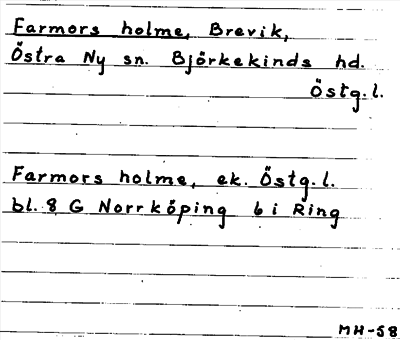 Farmors holme, Brevik,
Östra Ny sn. Björkekinds hd.
Östg.l.
Farmors holme, ek. Östg.l.
bl. 8 G Norrköping 6 i Ring
MH-58